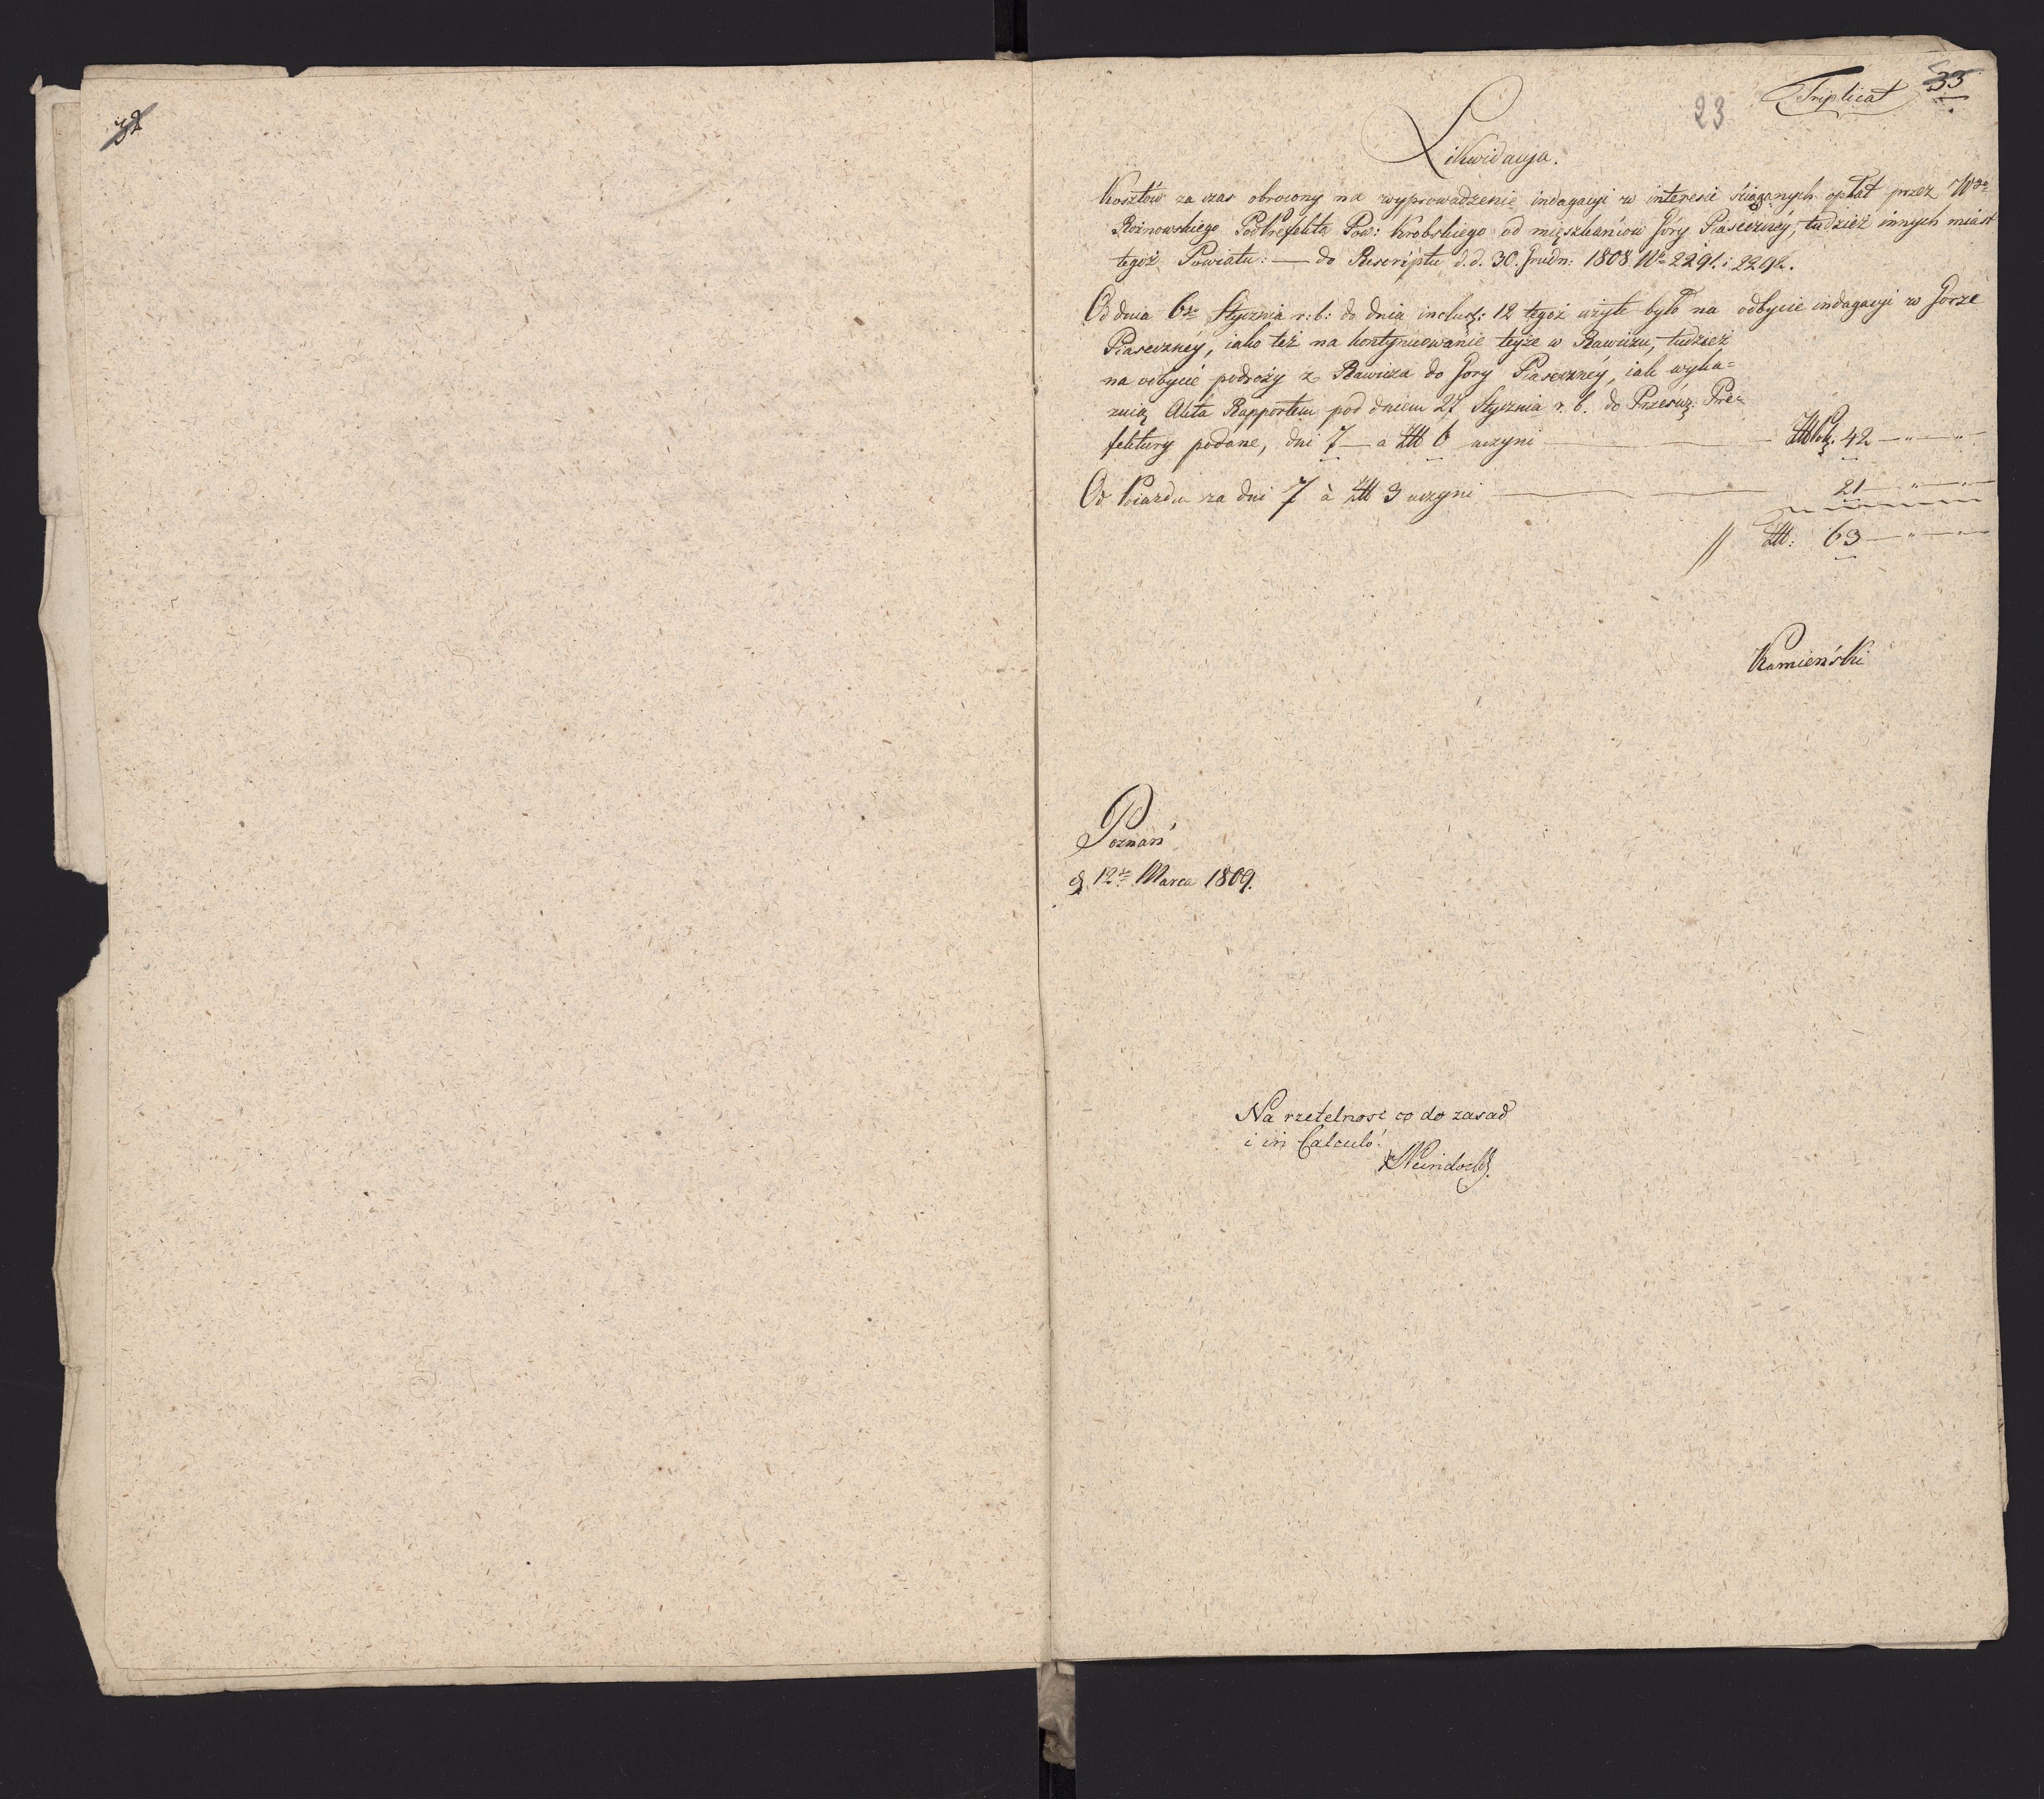 32
Triplicat 33
23
Likwidacyа.
Kosztów za czas obrocony na wyprowadzenie indagacyi w interesie ściąganych opłat przez Wgo
Rożnowskiego PodPrefekta Pow: Krobskiego od mięszkańcow Góry Piaseczney, tudzież innych miast
tegoż Powiatu: — do Rescriptu d.d. 30. Grudn: 1808 No 2291. i 2292.
Od dnia 6go Stycznia r: b: do dnia inclus: 12 tegoż użyte było na odbycie indagacyi w Gorze
Piaseczney, iako też na kontynuowanie teyże w Rawiczu, tudzież
na odbycie podroży z Rawicza do Gory Piaseczney, iak wyka=
zuią Akta Rapportem pod dniem 27 Stycznia r. b. do Prześw. Pre=
fektury podane, dni 7 — a Zll 6 uczyni — Zll Pol: 42 — " — "
Od Poiazdu za dni 7 à Zll 3 uczyni — 21 — " — "
// Zll: 63 — " — "
Kamieński
Poznań
d. 12go Marca 1809.
Na rzetelnosc co do zasad
i in Calculo.